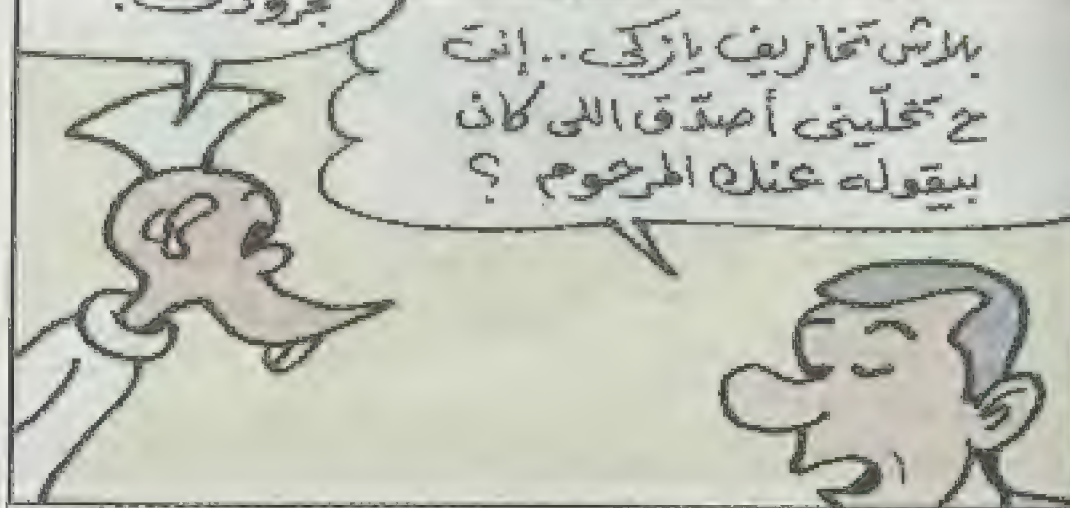 بلاش تخاريف يا زكى .. إنت
ح تخلّينى أصدّق اللى كان
بيقوله عنك المرحوم ؟